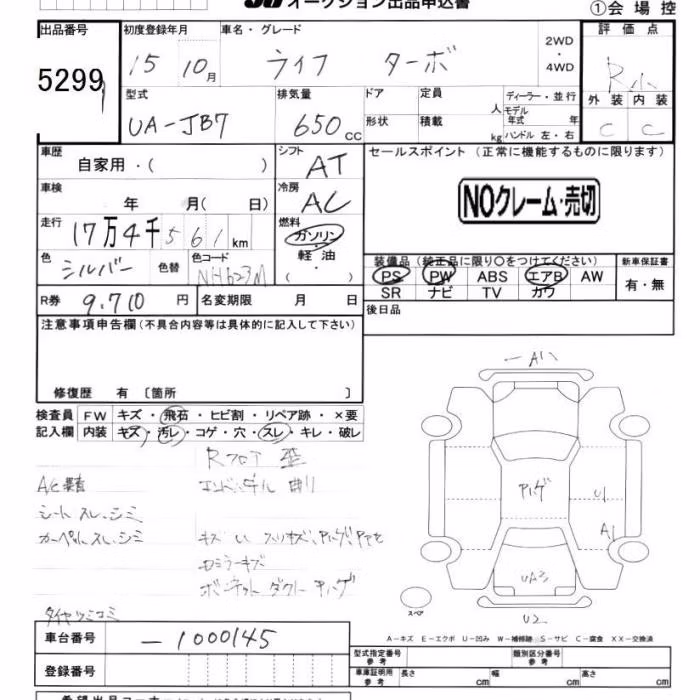 オークション出品申込書
①会場控
出品番号 初度登録年月 車名・グレード 2WD ・ 4WD 評価点
5299 15 10月 ライフ ターボ R
型式 排気量 ドア 定員 人 ディーラー・並行 外装 内装
UA-JB7 650cc 形状 積載 kg モデル年式 年 ハンドル 左・右 C C
車歴 自家用・( ) シフト AT セールスポイント (正常に機能するものに限ります)
車検 年 月( 日) 冷房 AC NOクレーム・売切
走行 17万4千561km 燃料 ガソリン・軽油・( )
色 シルバー 色替 色コード NH623M 装備品 (純正品に限り○をつけてください) 新車保証書
PS PW ABS エアB AW 有・無
SR ナビ TV カワ
R券 9,710円 名変期限 月 日 後日品
注意事項申告欄(不具合内容等は具体的に記入して下さい)
修復歴 有 〔箇所 〕
検査員 FW キズ・飛石・ヒビ割・リペア跡・×要
記入欄 内装 キズ・汚レ・コゲ・穴・スレ・キレ・破レ
Rフロア 歪
シートスレ、シミ
カーペットスレ、シミ
ボンネットダクト
A1
U1
A1
UA3
U2
スペア
A-キズ E-エクボ U-凹み W-補修跡 S-サビ C-腐食 XX-交換済
車台番号 -1000145
登録番号
型式指定番号 参考 類別区分番号 参考
車庫証明用 参考 長さ cm 幅 cm 高さ cm
希望出品コーナー